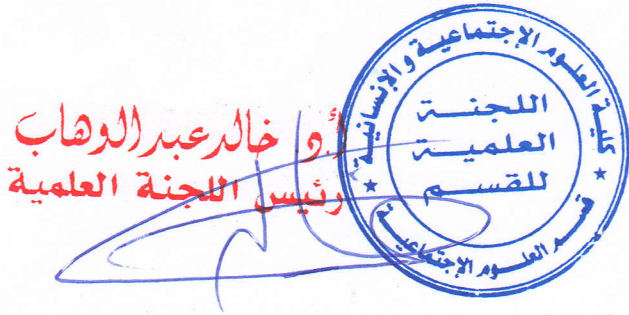 أ.د خالد عبد الوهاب
رئيس اللجنة العلمية
كلية العلوم الإجتماعية و الإنسانية
اللجنة
العلمية
للقسم
قسم العلوم الإجتماعية